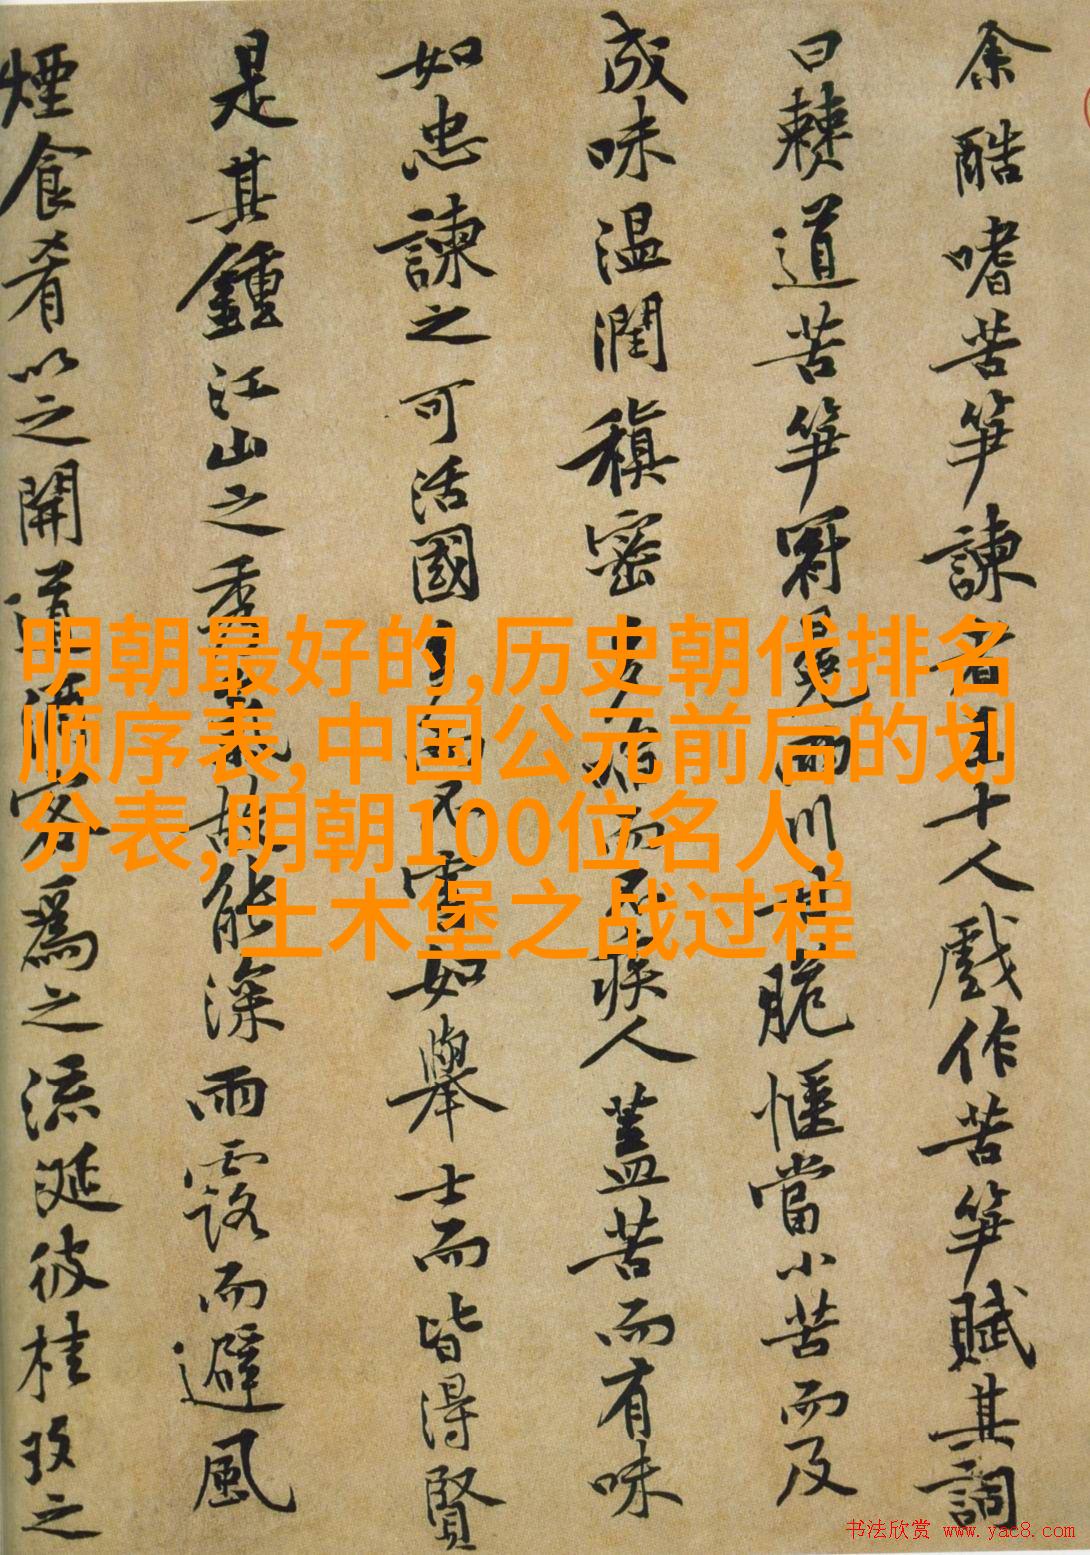 余酷嗜苦笋諫者至十人戲作苦笋賦其詞
曰僰道苦笋冠冕兩川甘脆愜當小苦而及
成味温潤稹密多啗而不疾人蓋苦而有味
如忠諫之可活國多而不害如舉士而皆得賢
是其鍾江山之秀氣故能深雨露而避風
煙食肴以之開道酒客爲之流涎彼桂玫之
明朝最好的,历史朝代排名
顺序表,中国公元前后的划
分表,明朝100位名人,
土木堡之战过程
书法欣赏 www.yac8.com